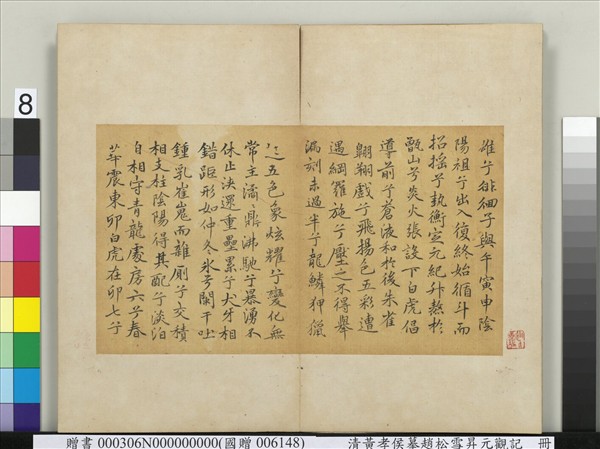 雄兮徘徊子與午寅申陰
陽祖兮出入復終始循斗而
招搖兮執衡定元紀升熬於
甑山兮炎火張設下白虎倡
導前兮蒼液和於後朱雀
翱翔戲兮飛揚色五彩遭
遇網羅施兮壓之不得舉
漏刻未過半兮龍鱗狎獵
五色象炫耀兮變化無
常主潏鼎沸馳兮暴湧不
休止決還重疊累兮犬牙相
錯距形如仲冬氷兮闌干吐
鍾乳崔嵬而雜廁兮交積
相支柱陰陽得其配兮淡泊
自相守青龍處房六兮春
華震東卯白虎在卯七兮
8
贈書 000306N000000000(國贈 006148) 清黃孝侯摹趙松雪昇元觀記 冊